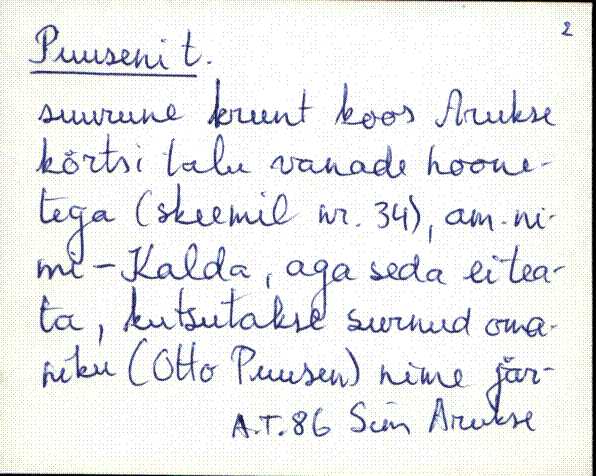 2
Puuseni t.
suurune krunt koos Arukse
kõrtsi talu vanade hoone-
tega (skeemil nr. 34), am.ni-
mi – Kalda, aga seda ei tea-
ta, kutsutakse surnud oma-
niku (Otto Puusen) nime jär-
A.T. 86 Siin Arukse